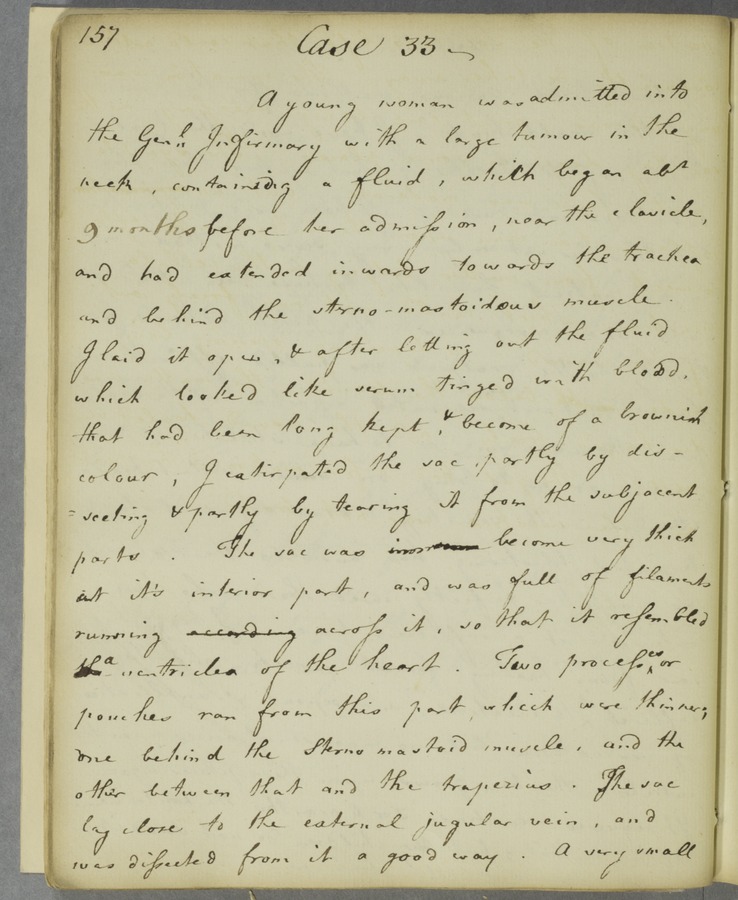 157
Case 33
A young woman was admitted into
the Genl Infirmary with a large tumour in the
neck, containing a fluid, which began abt
9 months before her admission, near the clavicle,
and had extended inwards towards the trachea
and behind the sterno-mastoideus muscle.
I laid it open, & after letting out the fluid
which looked like serum tinged with blood,
that had been long kept, & become of a brownish
colour, I extirpated the sac partly by dis-
=secting & partly by tearing it from the subjacent
parts. The sac was become very thick
at it's interior part, and was full of filaments
running according across it, so that it resembled
a ventricles of the heart. Two processes or
pouches ran from this part which were thinner,
one behind the Sterno mastoid muscle, and the
other between that and the trapezius. The sac
lay close to the external jugular vein, and
was dissected from it a good way. A very small